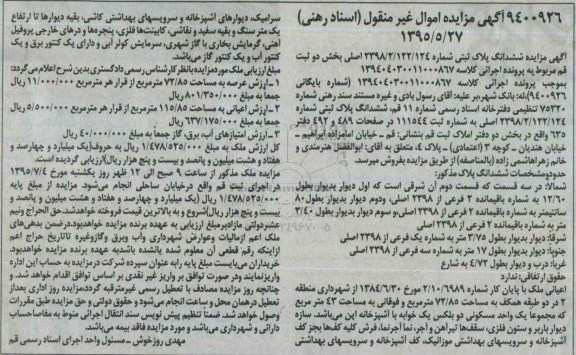 ۹۴۰۰۹۲۶ آگهی مزایده اموال غیر منقول (اسناد رهنی)
۱۳۹۵/۵/۲۷
آگهی مزایده ششدانگ پلاک ثبتی شماره ۲۳۹۸/۲/۱۲۲/۱۲۴ اصلی بخش دو ثبت
قم مربوط به پرونده اجرائی کلاسه
بموجب پرونده اجرائی کلاسه (شماره بایگانی
۹۴۰۰۹۲۶) له: بانک شهر برعلیه: آقای رسول بادی و غیره مستند سند رهنی شماره
۷۵۳۲۰ تنظیمی دفترخانه اسناد رسمی شماره ۱۱ قم، ششدانگ پلاک ثبتی شماره
۲۳۹۸/۲/۱۲۲/۱۲۴ اصلی به شماره ثبت ۱۱۱۵۴۴ در صفحات ۴۸۹ و ۴۹۲ دفتر
۶۳۵ واقع در بخش دو دفتر املاک ثبت قم بنشانی: قم - خیابان امامزاده ابراهیم -
خیابان هندیان - کوچه ۳ (اعتمادی) - پلاک ۴، متعلق به آقای: ابوالفضل هنرمندی و
خانم زهراهاشمی زاده (بالمناصفه) از طریق مزایده بفروش میرسد.
حدود و مشخصات ششدانگ پلاک مذکور:
شمالا: در سه قسمت که قسمت دوم آن شرقی است که اول دیوار بدیوار بطول
۱۲/۶۰ به شماره باقیمانده ۲ فرعی از ۲۳۹۸ اصلی، ودوم دیوار بدیوار بطول ۸۰
سانتیمتر به شماره باقیمانده ۲ فرعی از ۲۳۹۸ اصلی و سوم دیوار بدیوار بطول ۳/۴۰
متر به شماره باقیمانده ۲ فرعی از ۲۳۹۸ اصلی
شرقا: دیوار بدیوار بطول ۳/۷۵ متر به شماره یک فرعی از ۲۳۹۸ اصلی
جنوبا: دیوار بدیوار بطول ۱۷ متر به شماره سه فرعی از ۲۳۹۸ اصلی
غربا: درب و دیوار بطول ۴/۷۲ به شارع
حقوق ارتفاقی: ندارد
اعیانی ملک با پایان کار شماره ۲/۱۰۶۹۸۹ مورخ ۱۳۸۴/۶/۳۰ از شهرداری منطقه
۲ در دو طبقه همکف به مساحت ۷۲/۸۵ مترمربع و فوقانی به مساحت ۴۳ متر مربع
که مجموعا یک واحد مسکونی دو بلکس یک خوابه با آشپزخانه اپن می باشد. سازه
دیوار باربر و ستون فلزی، سقفها تیرآهن و آجر، نما آجرنما، فرش کلیه کف‌ها بجز کف
آشپزخانه و سرویسهای بهداشتی موزائیک، کف آشپزخانه و سرویسهای بهداشتی
سرامیک، دیوارهای آشپزخانه و سرویسهای بهداشتی کاشی، بقیه دیوارها تا ارتفاع
یک متر سنگ و بقیه سفید و نقاشی، کابینت‌ها فلزی، پنجره‌ها و درهای خارجی پروفیل
آهنی، گرمایش بخاری با گاز شهری، سرمایش کولر آبی و دارای یک کنتور برق و یک
کنتور آب و یک کنتور گاز می‌باشد.
مبلغ ارزیابی ملک مورد مزایده با نظر کارشناس رسمی دادگستری بدین شرح اعلام میگردد:
۱- ارزش عرصه به مساحت ۷۲/۸۵ مترمربع از قرار هر مترمربع ۱۱/۰۰۰/۰۰۰ ریال
جمعا به مبلغ ۸۰۱/۳۵۰/۰۰۰ ریال
۲- ارزش اعیانی به مساحت ۱۱۵/۸۵ مترمربع از قرار هر مترمربع ۵/۵۰۰/۰۰۰ ریال
جمعا به مبلغ ۶۳۷/۱۷۵/۰۰۰ ریال
۳- ارزش امتیازهای آب، برق، گاز جمعا به مبلغ ۴۰/۰۰۰/۰۰۰ ریال
کل ارزش ملک به مبلغ ۱/۴۷۸/۵۲۵/۰۰۰ ریال به حروف (یک میلیارد و چهارصد و
هفتاد و هشت میلیون و پانصد و بیست و پنج هزار ریال) ارزیابی گردیده است.
مزایده ملک مذکور از ساعت ۹ صبح الی ۱۲ ظهر روز یکشنبه مورخ ۱۳۹۵/۷/۴
در اجرای ثبت قم واقع درخیابان ساحلی انجام می‌شود. مزایده از مبلغ پایه
۱/۴۷۸/۵۲۵/۰۰۰ ریال (یک میلیارد و چهارصد و هفتاد و هشت میلیون و پانصد و
بیست و پنج هزار ریال) شروع و به بالاترین قیمت فروخته خواهد شد. حق الحراج ونیم
عشر دولتی مازاد بر مبلغ ارزیابی به عهده برنده مزایده خواهد بود. در ضمن بدهی‌های
ملک اعم از مالیات و عوارض شهرداری و آب و برق و گاز و غیره تا تاریخ حراج اعم
از اینکه رقم قطعی آن معلوم شده یا نشده باشد به عهده برنده مزایده خواهد بود.
خریداران می‌بایست مبلغ پایه را به عنوان سپرده شرکت در مزایده به حساب این اداره
واریز نمایند و در صورت توافق بر واریز غیر نقدی بر اساس توافق اقدام خواهد شد. و
چنانچه روز مزایده مصادف با تعطیل رسمی غیر مترقبه گردد مزایده روز اداری بعد از
تعطیل در همان محل و ساعت انجام می‌شود و حقوق دولتی و حق مزایده طبق مقررات
وصول خواهد شد. ضمنا تنظیم پیش نویس سند انتقال اجرائی منوط به مفاصا حساب
دارائی و شهرداری می‌باشد و مورد مزایده فاقد بیمه می‌باشد.
مهدی روزخوش - مسئول واحد اجرای اسناد رسمی قم